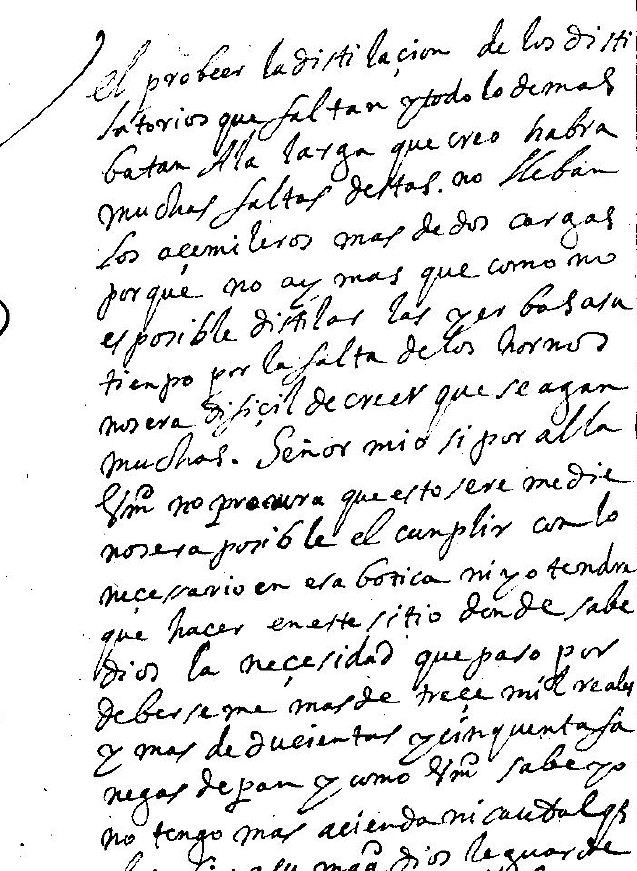 el probeer la distilaçion de los disti
latorios que faltan y todo lo demas
batan A la larga que creo habra
muchas faltas destas. no lleban
los açemileros mas de dos cargas
porque no ay mas que como no
es posible distilar las yerbas a su
tiempo por la falta de los hornos
no sera difiçil de creer que se agan
muchas. Señor mio si por alla
Vm no procura que esto se remedie
no sera posible el cunplir con lo
neçessario en esa botica ni yo tendra
que hacer en este sitio donde sabe
dios la neçesidad que paso por
deberseme mas de treçe mill reales
y mas de ducientas y çinquenta fa
negas de pan y como Vm sabe yo
no tengo mas acienda ni caudal q
su magd dios le guarde